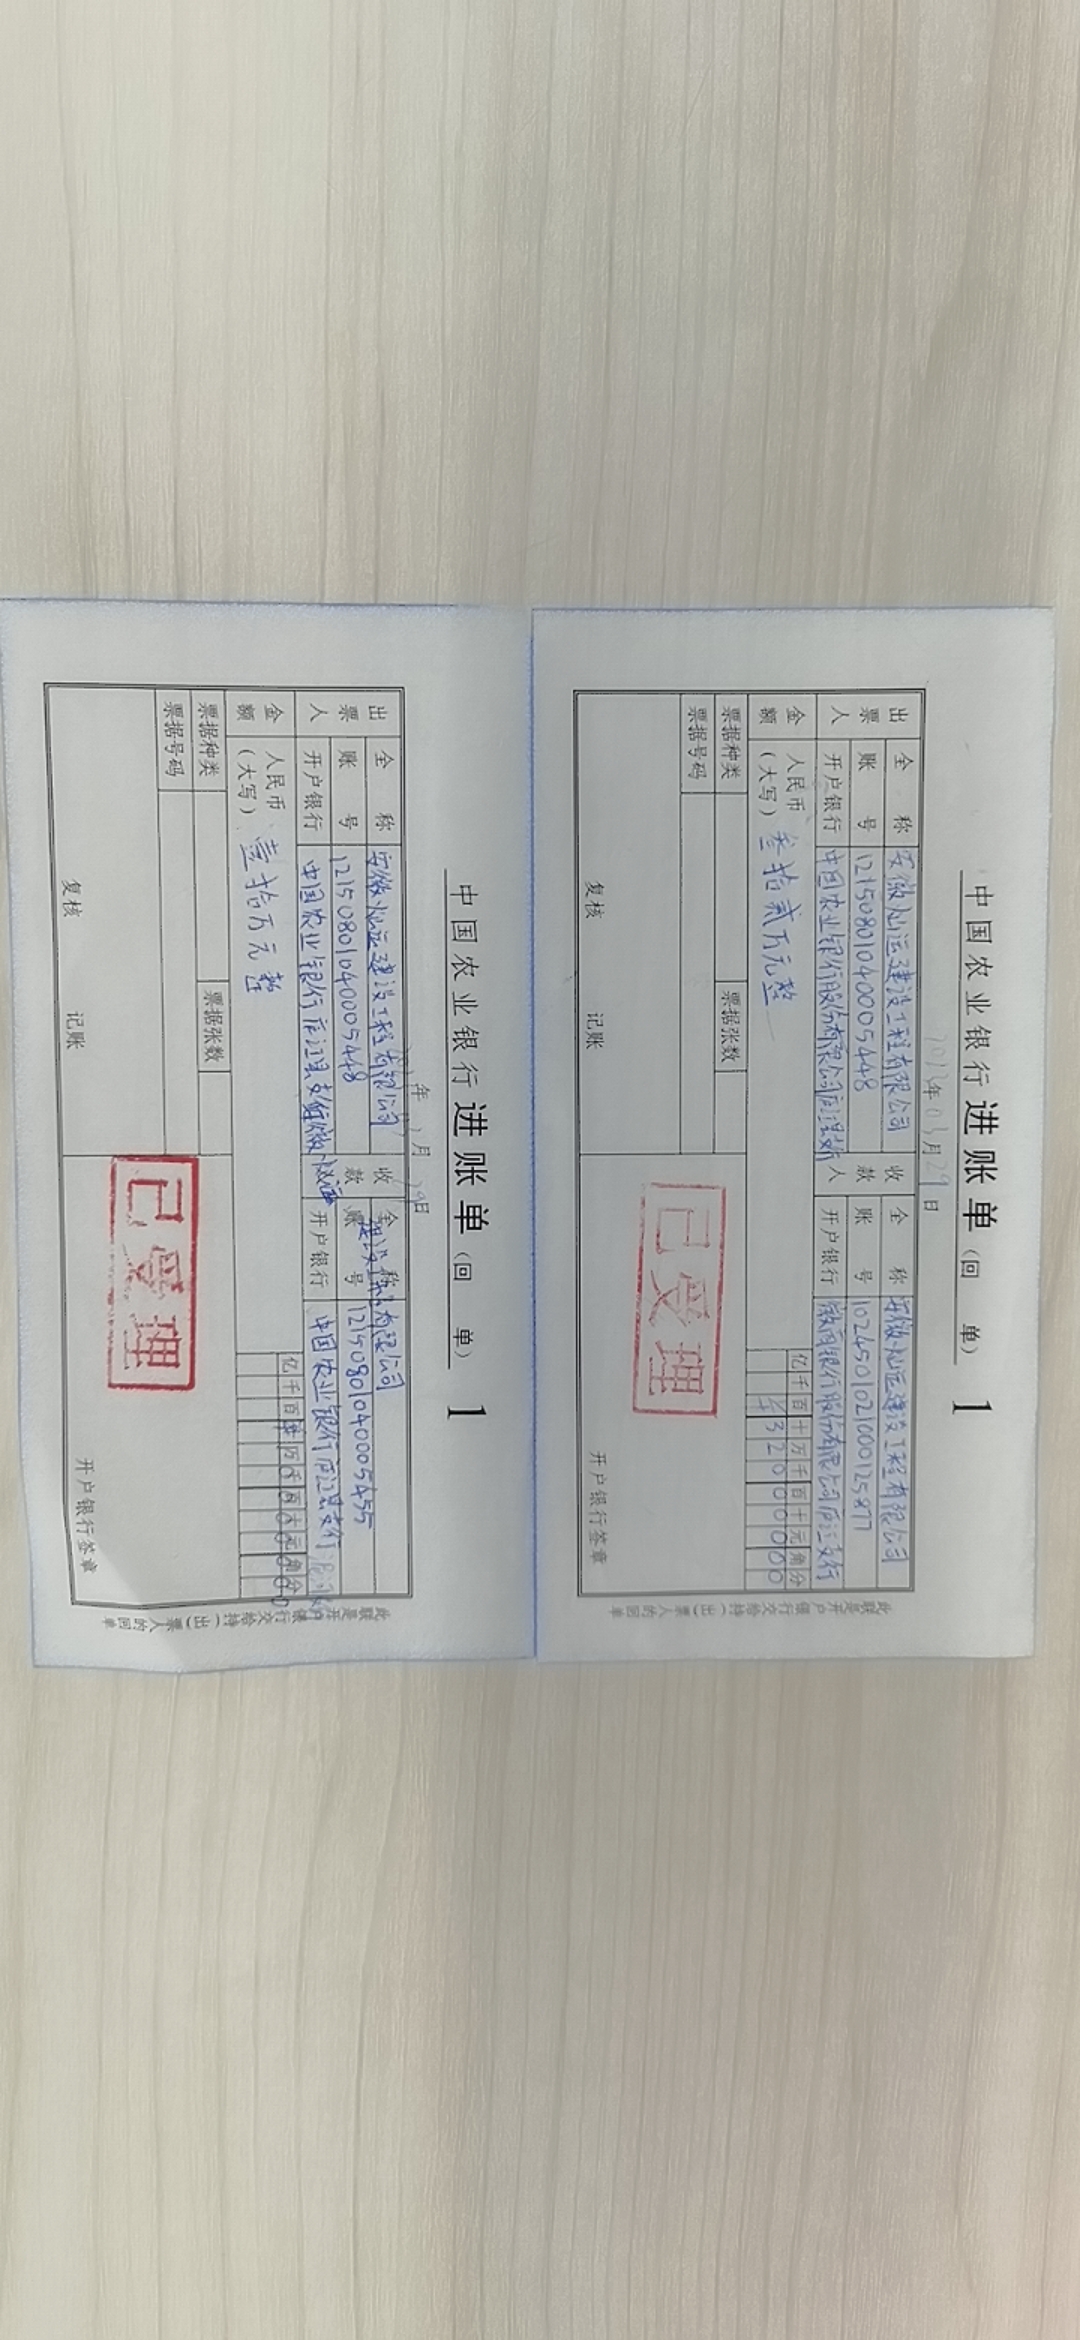 中国农业银行进账单（回 单） 1
2023年03月29日
出票人 全称 安徽灿运建设工程有限公司 收款人 全称 安徽灿运建设工程有限公司
账号 12150801040005448 账号 1024501021000125877
开户银行 中国农业银行股份有限公司庐江县 开户银行 徽商银行股份有限公司庐江支行
金额 人民币（大写） 叁拾贰万元整 亿千百十万千百十元角分
¥32000000
票据种类 票据张数
票据号码
已受理
复核 记账 开户银行签章
此联是开户银行交给持（出）票人的回单
中国农业银行进账单（回 单） 1
年 月 29日
出票人 全称 安徽灿运建设工程有限公司 收款 全称 有限公司
账号 12150801040005448 账号 12150801040005455
开户银行 中国农业银行庐江县支行 开户银行 中国农业银行庐江县支行
金额 人民币（大写） 壹拾万元整 亿千百十万千百十元角分
票据种类 票据张数
票据号码
已受理
复核 记账 开户银行签章
此联是开户银行交给持（出）票人的回单